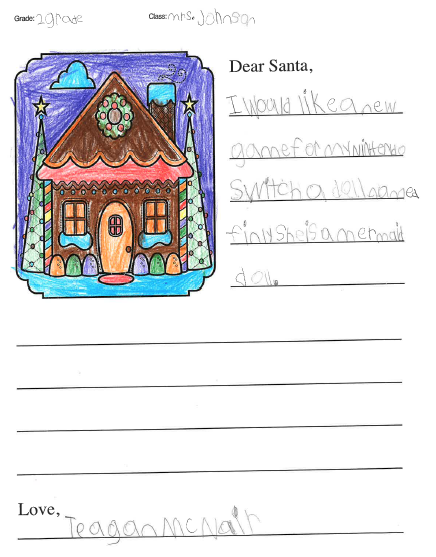 Grade: 2grade Class: mrs. Johnson
Dear Santa,
I Would like a new
game for my nintendo
Switch a doll named
finly She is a mermaid
doll.
Love,
Teagan McNair